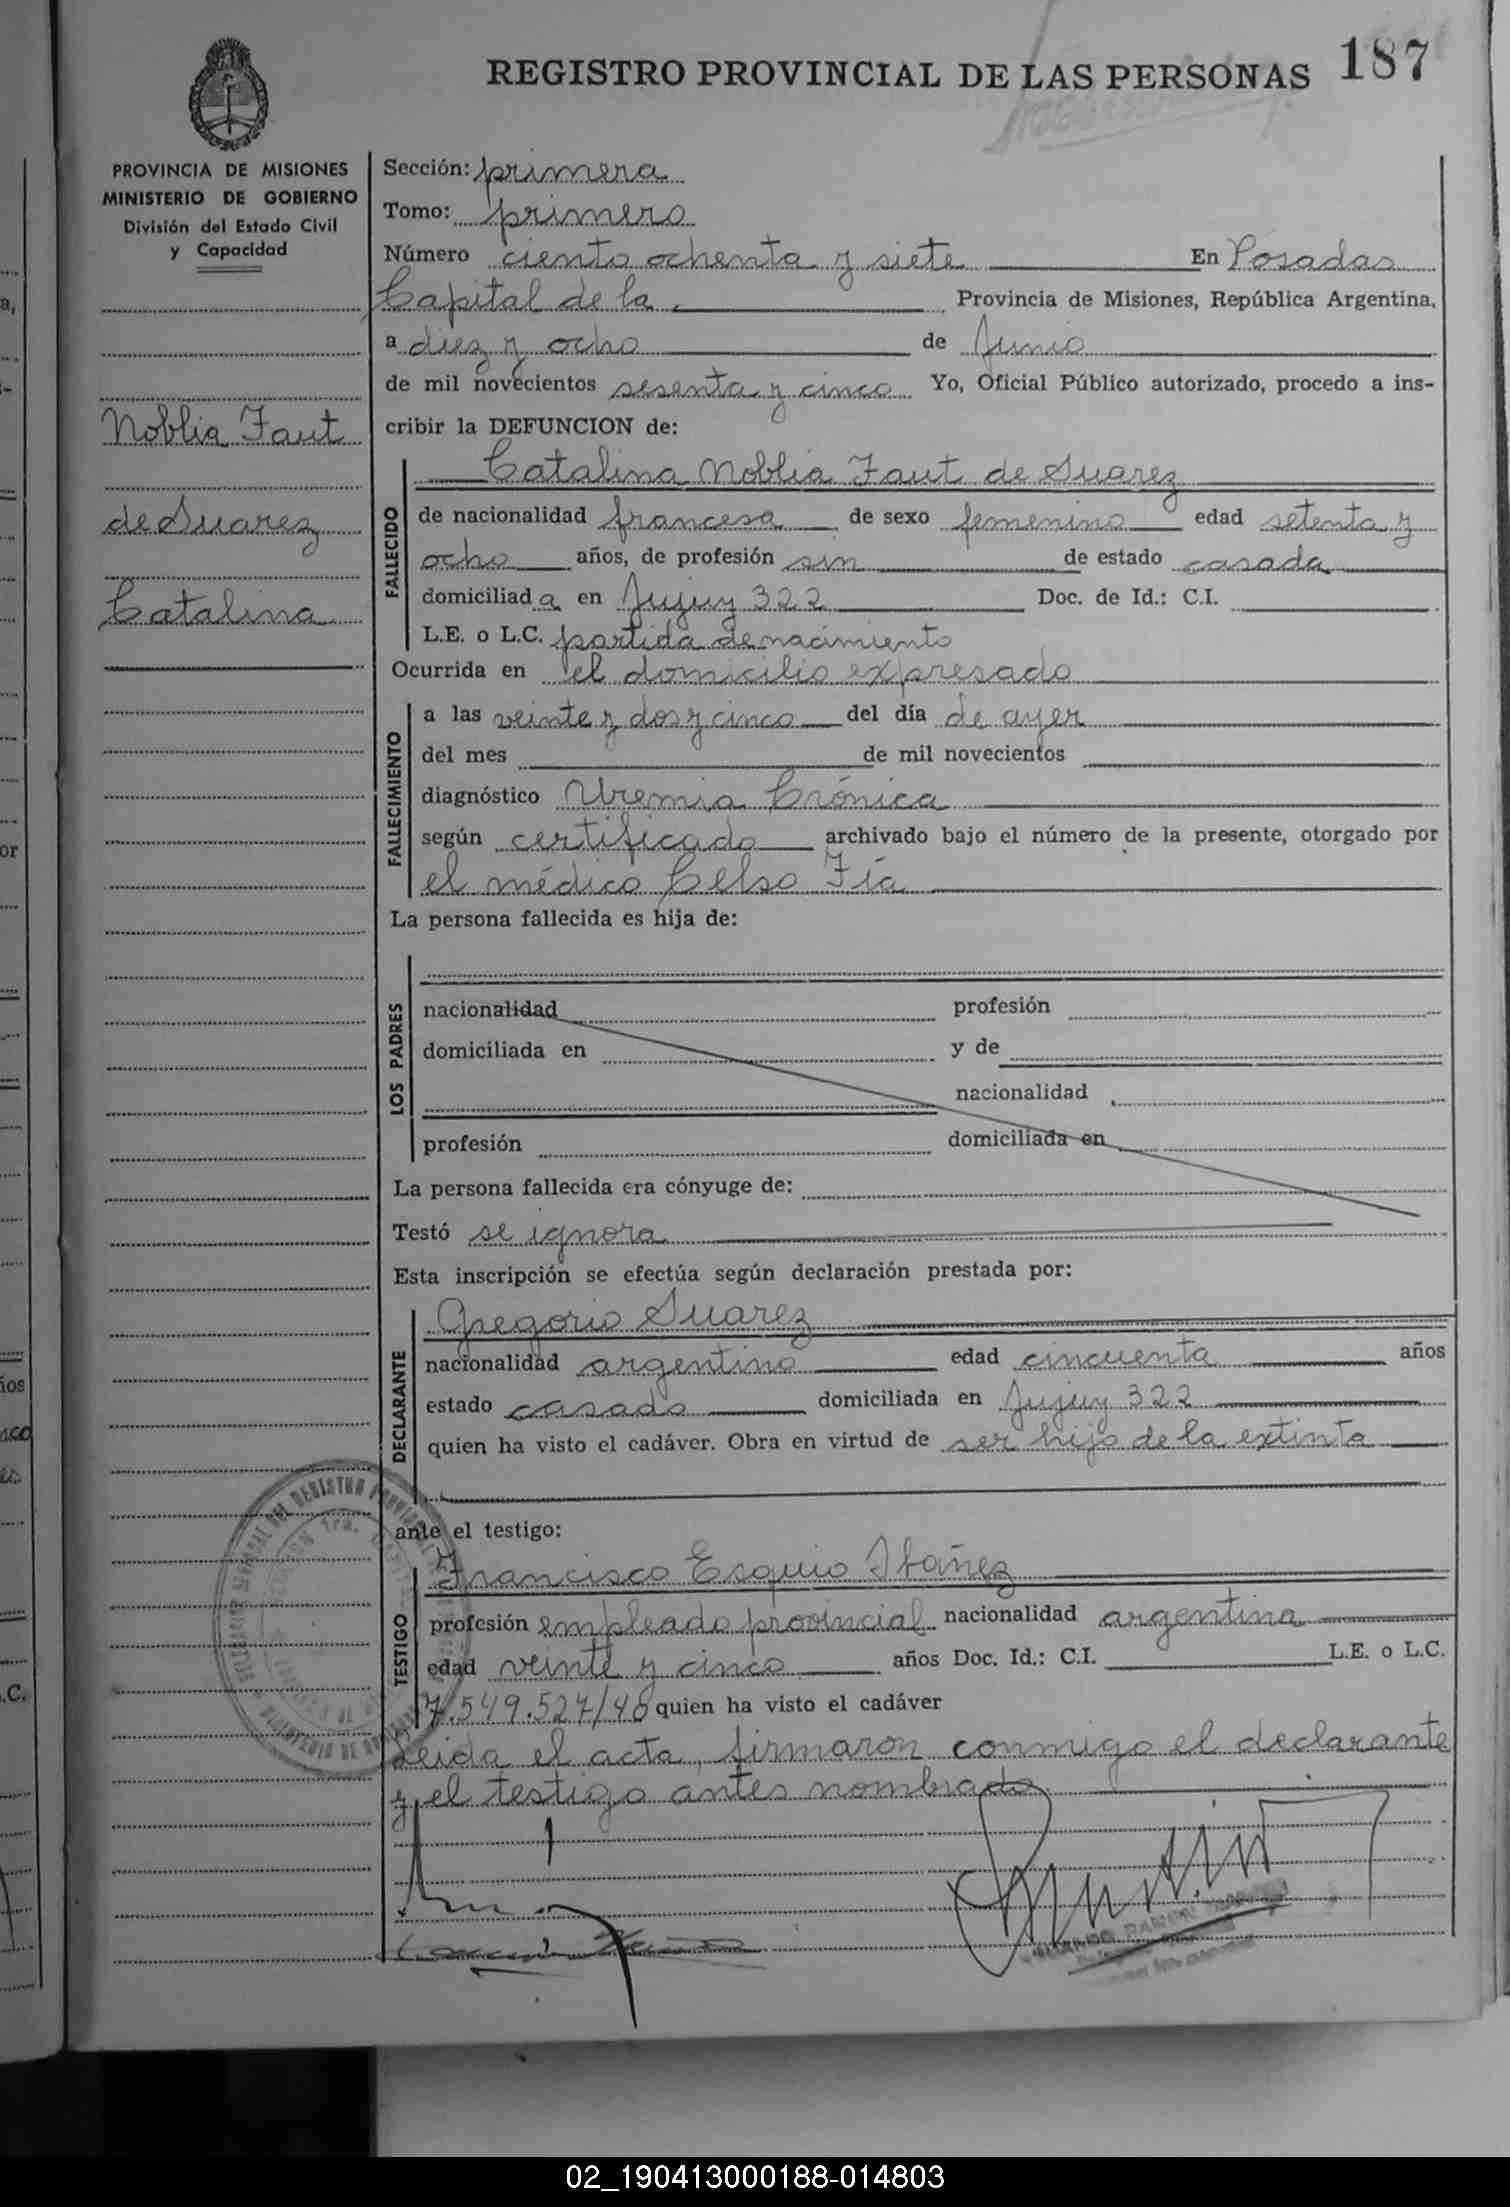 REGISTRO PROVINCIAL DE LAS PERSONAS 187
PROVINCIA DE MISIONES
MINISTERIO DE GOBIERNO
División del Estado Civil
y Capacidad
Noblia Faut
de Suarez
Catalina
Sección: primera
Tomo: primero
Número ciento ochenta y siete En Posadas
Capital de la Provincia de Misiones, República Argentina,
a diez y ocho de Junio
de mil novecientos sesenta y cinco Yo, Oficial Público autorizado, procedo a ins-
cribir la DEFUNCION de:
Catalina Noblia Faut de Suarez
FALLECIDO
de nacionalidad francesa de sexo femenino edad setenta y
ocho años, de profesión sin de estado casada
domiciliada en Jujuy 322 Doc. de Id.: C.I.
L.E. o L.C. partida de nacimiento
Ocurrida en el domicilio expresado
FALLECIMIENTO
a las veinte y dos y cinco del día de ayer
del mes de mil novecientos
diagnóstico Uremia Crónica
según certificado archivado bajo el número de la presente, otorgado por
el médico Celso Fía
La persona fallecida es hija de:
LOS PADRES
nacionalidad profesión
domiciliada en y de
nacionalidad
profesión domiciliada en
La persona fallecida era cónyuge de:
Testó se ignora
Esta inscripción se efectúa según declaración prestada por:
DECLARANTE
Gregorio Suarez
nacionalidad argentino edad cincuenta años
estado casado domiciliada en Jujuy 322
quien ha visto el cadáver. Obra en virtud de ser hijo de la extinta
ante el testigo:
TESTIGO
Francisco Esquio Ibañez
profesión empleado provincial nacionalidad argentina
edad veinte y cinco años Doc. Id.: C.I. L.E. o L.C.
7.549.527/40 quien ha visto el cadáver
Leida el acta, firmaron conmigo el declarante
y el testigo antes nombrado
02_190413000188-014803